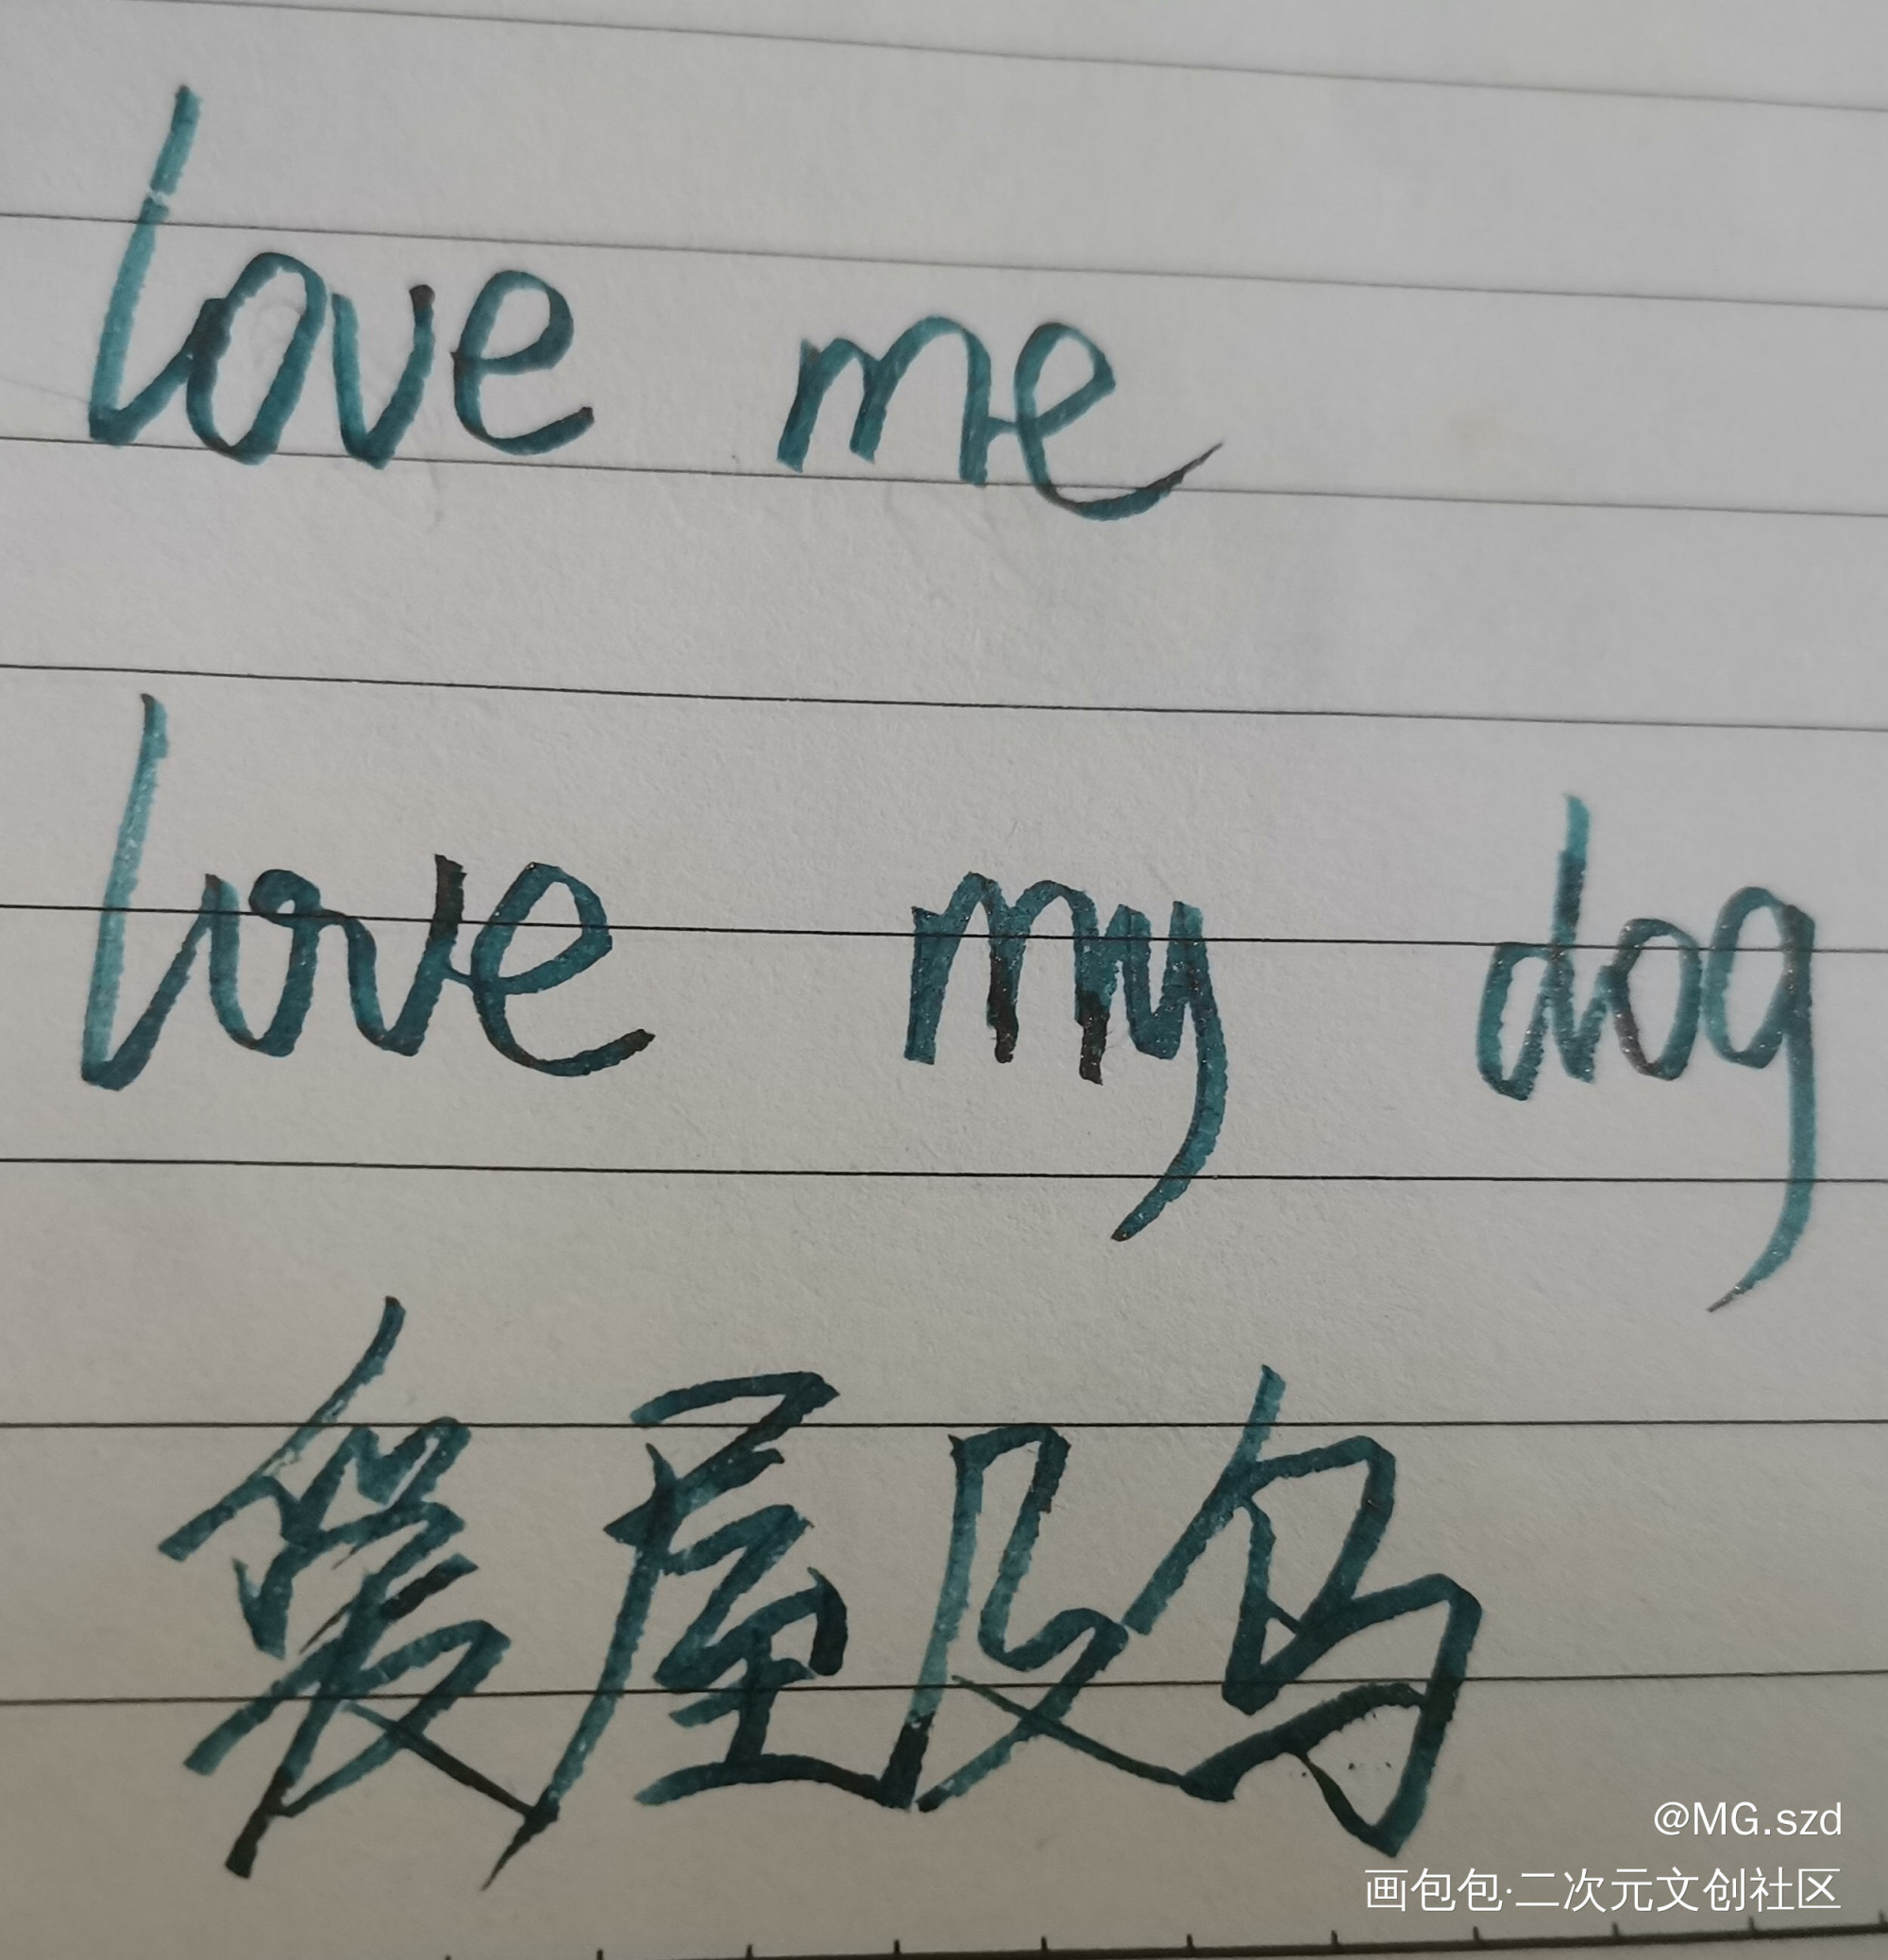 love me
love my dog
爱屋及乌
@MG.szd
画包包·二次元文创社区